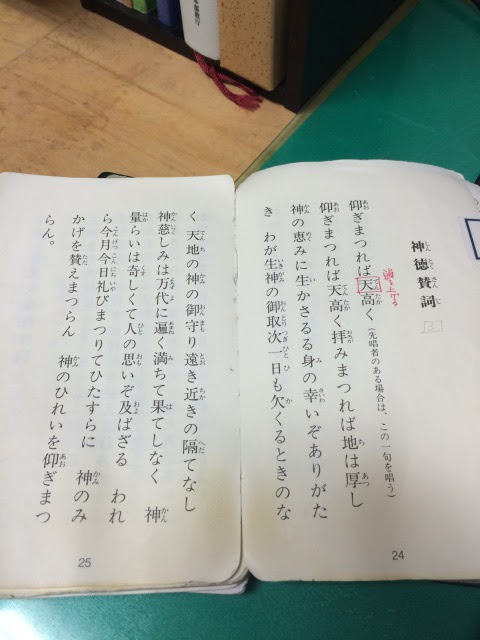 神徳賛詞
仰ぎまつれば天高く(先唱者のある場合は、この一句を唱う)
仰ぎまつれば天高く拝みまつれば地は厚し
神の恵みに生かさるる身の幸いぞありがた
き わが生神の御取次一日も欠くるときのな
24
く 天地の神の御守り遠き近きの隔てなし
神慈しみは万代に遍く満ちて果てしなく 神
量らいは奇しくて人の思いぞ及ばざる われ
ら今月今日礼びまつりてひたすらに 神のみ
かげを賛えまつらん 神のひれいを仰ぎまつ
らん。
25